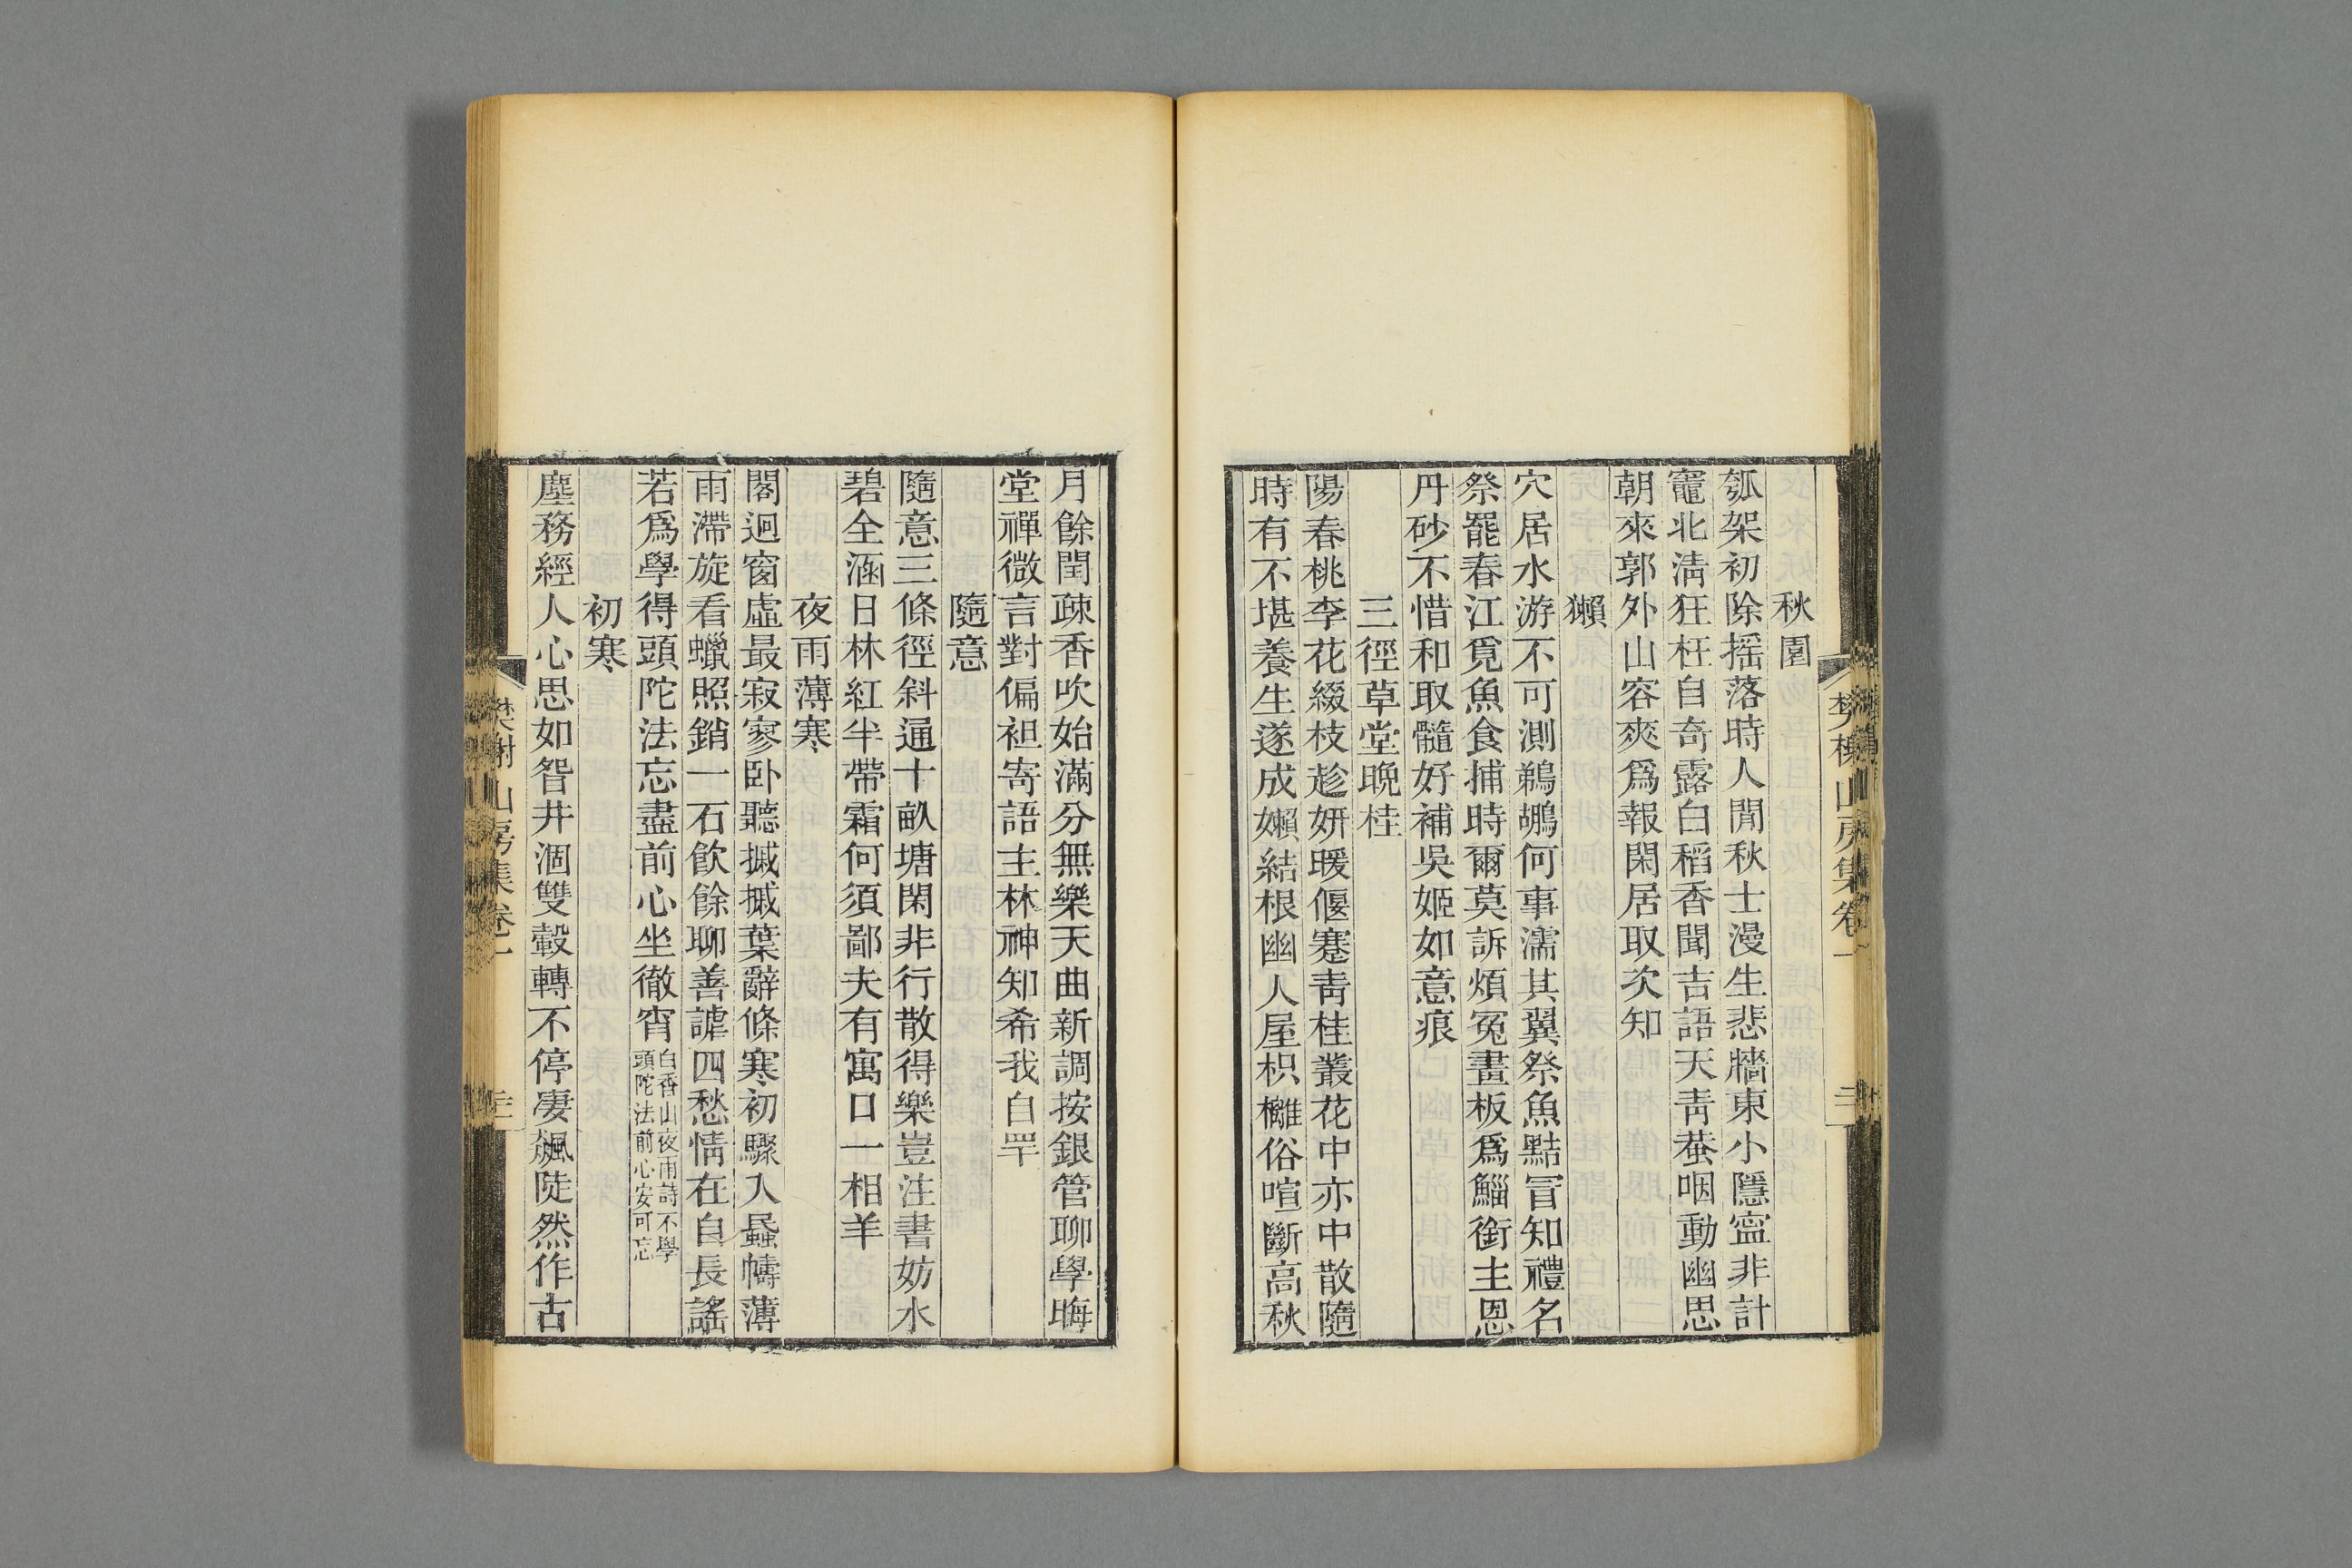 秋園
瓠架初除摇落時人閒秋士漫生悲牆東小隱寍非計
竈北淸狂枉自奇露白稻香聞吉語天靑蛬咽動幽思
朝來郭外山容爽爲報閑居取次知
獺
穴居水游不可測鵜鶘何事濡其翼祭魚黠冒知禮名
祭罷春江覓魚食捕時爾莫訴煩冤畫板爲鯔銜主恩
丹砂不惜和取髓好補吳姬如意痕
三徑草堂晚桂
陽春桃李花綴枝趁妍暖偃蹇靑桂叢花中亦中散隨
時有不堪養生遂成嬾結根幽人屋枳檵俗喧斷高秋
月餘閏疎香吹始滿分無樂天曲新調按銀管聊學晦
堂禪微言對偏袒寄語主林神知希我自罕
隨意
隨意三條徑斜通十畝塘閑非行散得樂豈注書妨水
碧全涵日林紅半帶霜何須鄙夫有寓口一相羊
夜雨薄寒
閣迥窗虛最寂寥卧聽摵摵葉辭條寒初驟入蟁幬薄
雨滯旋看蠟照銷一石飮餘聊善謔四愁情在自長謠
若爲學得頭陀法忘盡前心坐徹宵白香山夜雨詩不學頭陀法前心安可忘
初寒
塵務經人心思如眢井涸雙轂轉不停凄飆陡然作古
樊榭山房集卷一